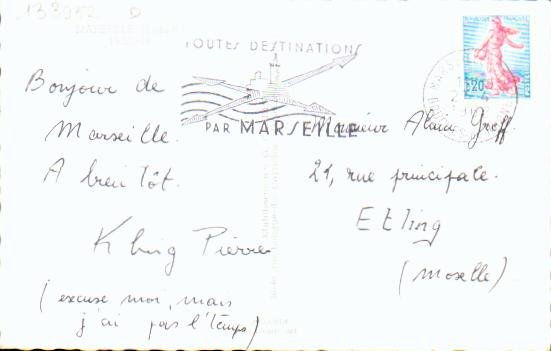 133962 D
TOUTES DESTINATIONS
PAR MARSEILLE
RÉPUBLIQUE FRANÇAISE
0,20
Bonjour de
Marseille.
A bientôt.
Kling Pierre
(excuse moi, mais
j'ai pas l'temps)
Monsieur Alain Greff.
21, rue principale.
Etling
(Moselle)